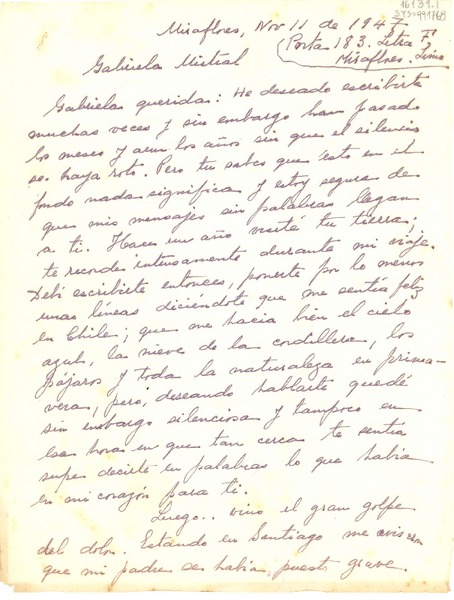 16131.1
Miraflores, Nov 11 de 1947
(Porta 183. Letra F.
Miraflores. Lima
Gabriela Mistral
Gabriela querida: He deseado escribirte
muchas veces y sin embargo han pasado
los meses y aun los años sin que el silencio
se haya roto. Pero tu sabes que esto en el
fondo nada significa y estoy segura de
que mis mensajes sin palabras llegan
a ti. Hace un año visité tu tierra;
te recordé intensamente durante mi viaje.
Debí escribirte entonces, ponerte por lo menos
unas líneas diciéndote que me sentía feliz
en Chile; que me hacía bien el cielo
azul, la nieve de la cordillera, los
pájaros y toda la naturaleza en prima-
vera, pero, deseando hablarte quedé
sin embargo silenciosa y tampoco en
esa horas en que tan cerca te sentía
supe decirte en palabras lo que había
en mi corazón para ti.
Luego.. vino el gran golpe
del dolor. Estando en Santiago me avisaron
que mi padre se había puesto grave.